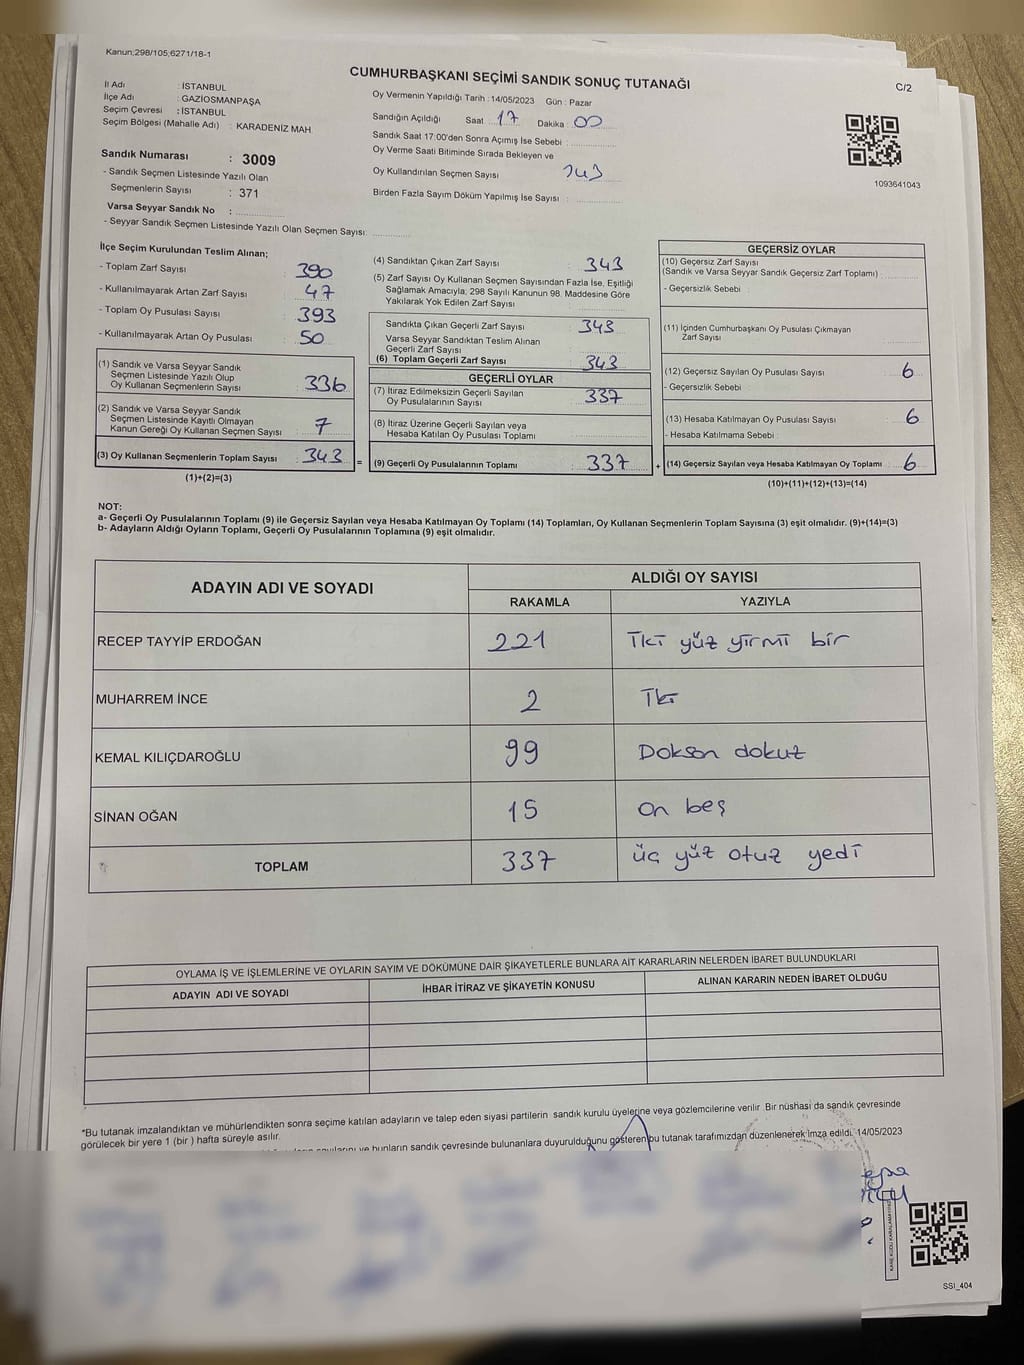 Kanun;298/105,6271/18-1
CUMHURBAŞKANI SEÇİMİ SANDIK SONUÇ TUTANAĞI
C/2
İl Adı : İSTANBUL
İlçe Adı : GAZİOSMANPAŞA
Seçim Çevresi : İSTANBUL
Seçim Bölgesi (Mahalle Adı) : KARADENİZ MAH
Oy Vermenin Yapıldığı Tarih : 14/05/2023 Gün : Pazar
Sandığın Açıldığı Saat 17 Dakika : 00
Sandık Saat 17:00'den Sonra Açımış İse Sebebi :
Oy Verme Saati Bitiminde Sırada Bekleyen ve
Oy Kullandırılan Seçmen Sayısı 343
Birden Fazla Sayım Döküm Yapılmış İse Sayısı :
1093641043
Sandık Numarası : 3009
- Sandık Seçmen Listesinde Yazılı Olan
Seçmenlerin Sayısı : 371
Varsa Seyyar Sandık No :
- Seyyar Sandık Seçmen Listesinde Yazılı Olan Seçmen Sayısı:
İlçe Seçim Kurulundan Teslim Alınan;
- Toplam Zarf Sayısı : 390
- Kullanılmayarak Artan Zarf Sayısı : 47
- Toplam Oy Pusulası Sayısı : 393
- Kullanılmayarak Artan Oy Pusulası : 50
(1) Sandık ve Varsa Seyyar Sandık
Seçmen Listesinde Yazılı Olup
Oy Kullanan Seçmenlerin Sayısı : 336
(2) Sandık ve Varsa Seyyar Sandık
Seçmen Listesinde Kayıtlı Olmayan
Kanun Gereği Oy Kullanan Seçmen Sayısı : 7
(3) Oy Kullanan Seçmenlerin Toplam Sayısı : 343 =
(1)+(2)=(3)
(4) Sandıktan Çıkan Zarf Sayısı : 343
(5) Zarf Sayısı Oy Kullanan Seçmen Sayısından Fazla İse, Eşitliği
Sağlamak Amacıyla; 298 Sayılı Kanunun 98. Maddesine Göre
Yakılarak Yok Edilen Zarf Sayısı :
Sandıkta Çıkan Geçerli Zarf Sayısı : 343
Varsa Seyyar Sandıktan Teslim Alınan
Geçerli Zarf Sayısı :
(6) Toplam Geçerli Zarf Sayısı : 343
GEÇERLİ OYLAR
(7) İtiraz Edilmeksizin Geçerli Sayılan
Oy Pusulalarının Sayısı : 337
(8) İtiraz Üzerine Geçerli Sayılan veya
Hesaba Katılan Oy Pusulası Toplamı :
(9) Geçerli Oy Pusulalarının Toplamı : 337 +
GEÇERSİZ OYLAR
(10) Geçersiz Zarf Sayısı
(Sandık ve Varsa Seyyar Sandık Geçersiz Zarf Toplamı) :
- Geçersizlik Sebebi :
(11) İçinden Cumhurbaşkanı Oy Pusulası Çıkmayan
Zarf Sayısı :
(12) Geçersiz Sayılan Oy Pusulası Sayısı : 6
- Geçersizlik Sebebi :
(13) Hesaba Katılmayan Oy Pusulası Sayısı : 6
- Hesaba Katılmama Sebebi :
(14) Geçersiz Sayılan veya Hesaba Katılmayan Oy Toplamı : 6
(10)+(11)+(12)+(13)=(14)
NOT:
a- Geçerli Oy Pusulalarının Toplamı (9) ile Geçersiz Sayılan veya Hesaba Katılmayan Oy Toplamı (14) Toplamları, Oy Kullanan Seçmenlerin Toplam Sayısına (3) eşit olmalıdır. (9)+(14)=(3)
b- Adayların Aldığı Oyların Toplamı, Geçerli Oy Pusulalarının Toplamına (9) eşit olmalıdır.
ADAYIN ADI VE SOYADI ALDIĞI OY SAYISI
RAKAMLA YAZIYLA
RECEP TAYYİP ERDOĞAN 221 İki yüz yirmi bir
MUHARREM İNCE 2 İki
KEMAL KILIÇDAROĞLU 99 Doksan dokuz
SİNAN OĞAN 15 On beş
TOPLAM 337 üç yüz otuz yedi
OYLAMA İŞ VE İŞLEMLERİNE VE OYLARIN SAYIM VE DÖKÜMÜNE DAİR ŞİKAYETLERLE BUNLARA AİT KARARLARIN NELERDEN İBARET BULUNDUKLARI
ADAYIN ADI VE SOYADI İHBAR İTİRAZ VE ŞİKAYETİN KONUSU ALINAN KARARIN NEDEN İBARET OLDUĞU
*Bu tutanak imzalandıktan ve mühürlendikten sonra seçime katılan adayların ve talep eden siyasi partilerin sandık kurulu üyelerine veya gözlemcilerine verilir. Bir nüshası da sandık çevresinde
görülecek bir yere 1 (bir ) hafta süreyle asılır.
ve bunların sandık çevresinde bulunanlara duyurulduğunu gösteren bu tutanak tarafımızdan düzenlenerek imza edildi. 14/05/2023
SSI_404